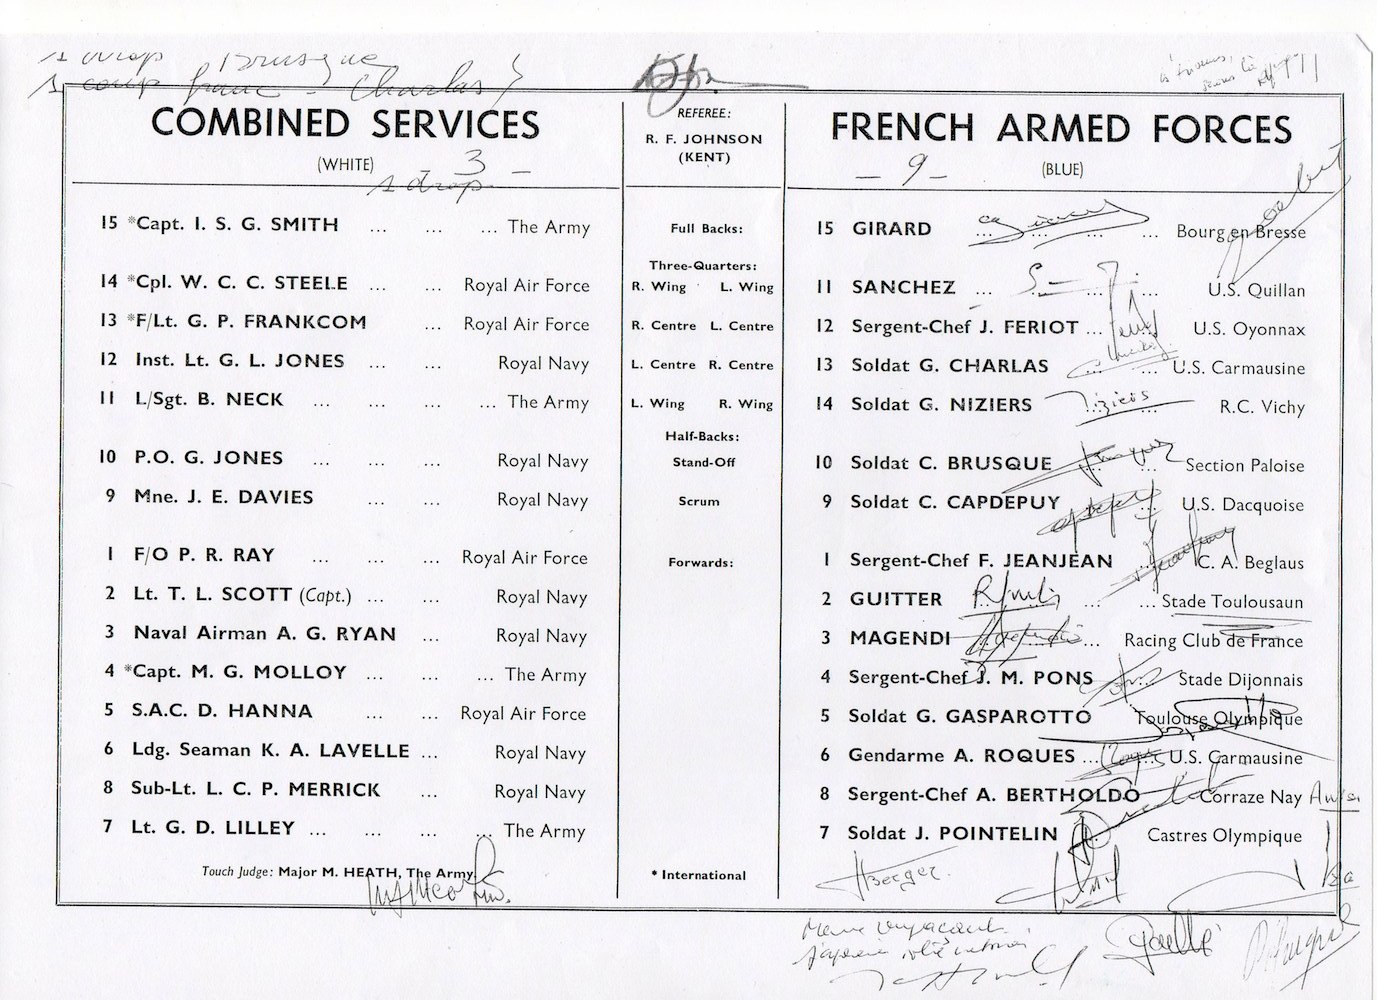 1 drop Brusque
1 coup franc - Charlas
COMBINED SERVICES
(WHITE) - 3 -
1 drop
REFEREE:
R. F. JOHNSON
(KENT)
FRENCH ARMED FORCES
- 9 - (BLUE)
15 *Capt. I. S. G. SMITH ... ... ... The Army
Full Backs:
15 GIRARD ... ... ... ... Bourg en Bresse
Three-Quarters:
14 *Cpl. W. C. C. STEELE ... ... Royal Air Force
R. Wing L. Wing
11 SANCHEZ ... ... ... ... U.S. Quillan
13 *F/Lt. G. P. FRANKCOM ... Royal Air Force
R. Centre L. Centre
12 Sergent-Chef J. FERIOT ... ... U.S. Oyonnax
12 Inst. Lt. G. L. JONES ... ... Royal Navy
L. Centre R. Centre
13 Soldat G. CHARLAS ... ... U.S. Carmausine
11 L/Sgt. B. NECK ... ... ... ... The Army
L. Wing R. Wing
14 Soldat G. NIZIERS Niziers ... ... R.C. Vichy
Half-Backs:
10 P.O. G. JONES ... ... ... Royal Navy
Stand-Off
10 Soldat C. BRUSQUE ... Section Paloise
9 Mne. J. E. DAVIES ... ... Royal Navy
Scrum
9 Soldat C. CAPDEPUY Capdepuy ... U.S. Dacquoise
1 F/O P. R. RAY ... ... ... Royal Air Force
Forwards:
1 Sergent-Chef F. JEANJEAN ... C. A. Beglaus
2 Lt. T. L. SCOTT (Capt.) ... ... Royal Navy
2 GUITTER ... ... ... Stade Toulousaun
3 Naval Airman A. G. RYAN ... Royal Navy
3 MAGENDI ... Racing Club de France
4 *Capt. M. G. MOLLOY ... ... ... The Army
4 Sergent-Chef J. M. PONS Stade Dijonnais
5 S.A.C. D. HANNA ... ... Royal Air Force
5 Soldat G. GASPAROTTO Toulouse Olympique
6 Ldg. Seaman K. A. LAVELLE ... Royal Navy
6 Gendarme A. ROQUES ... U.S. Carmausine
8 Sub-Lt. L. C. P. MERRICK ... Royal Navy
8 Sergent-Chef A. BERTHOLDO Corraze Nay
7 Lt. G. D. LILLEY ... ... ... ... The Army
7 Soldat J. POINTELIN Castres Olympique
Touch Judge: Major M. HEATH, The Army.
* International
HBerger